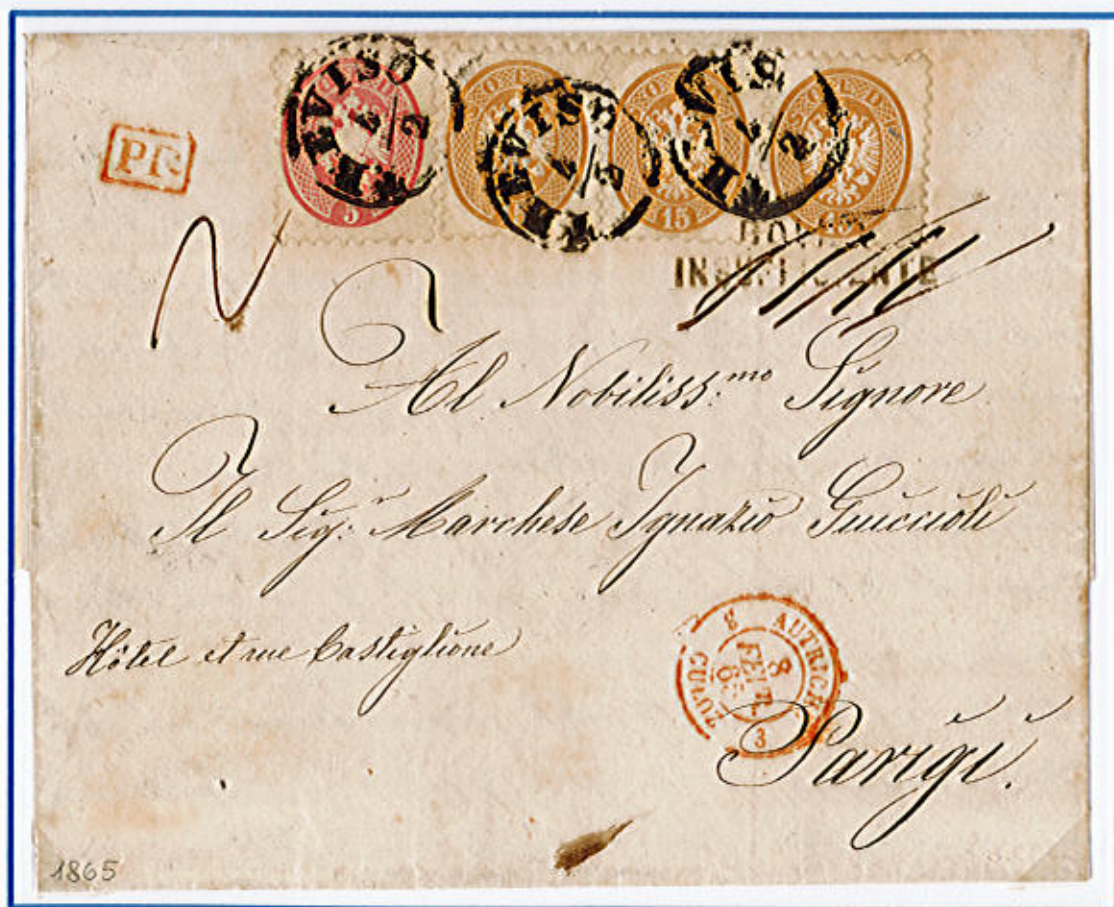 TREVISO
5/2
TREVISO
TREVISO
5
15
15
INSUFFICIENTE
2
Al Nobiliss:mo Signore
Il Sig:r Marchese Ignazio Guiccioli
Hôtel et rue Castiglione
AUTRICHE
8
FEVR.
65
3
CULOZ
Parigi.
1865